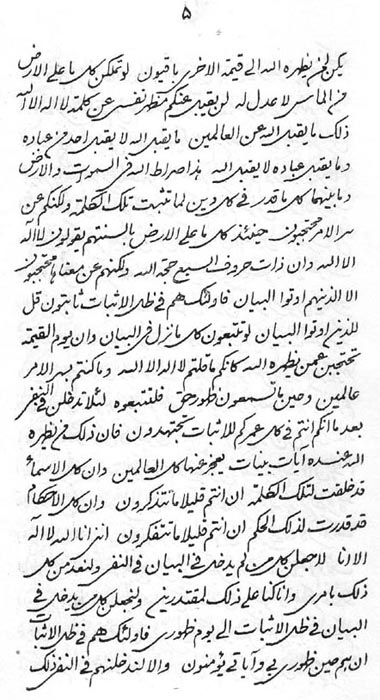 ۵
یکن لمن یظهره الله الی قیمة الاخری باقیون لو تملکن کل ما علی الارض
من الماس لا عدل له لن یقبل عنکم مظهر نفسی عن کلمة لا اله الا الله
ذلک ما یقبل الله عن العالمین ما یقبل الله لا یقبل احد من عباده
وما یقبل عباده لا یقبل الله هذا صراط الله فی السموات والارض
وما بینهما کل ما قدر فی کل دین لما تثبت تلک الکلمة ولکنکم عن
سر الامر محتجبون حینئذ کل ما علی الارض بالسنتهم یقولون لا اله
الا الله وان ذات حروف السبع حجة الله ولکنهم عن معناها محتجبون
الا الذینهم اوتوا البیان فاولئک هم فی ظل الاثبات ثابتون قل
للذین اوتوا البیان لو تتبعون کل ما نزل فی البیان وان یوم القیمة
تحتجبن عمن یظهره الله کانکم ما قلتم لا اله الا الله وما کنتم بسر الامر
عالمین وحین ما تسمعون ظهور حق فلتتبعوه لئلا تدخلن فی النفی
بعد ما انکم انتم فی کل عمرکم للاثبات تجتهدون فان ذلک من یظهره
الله عنده ایات بینات یعجز عنها کل العالمین وان کل الاسماء
قد خلقت لتلک الکلمة ان انتم قلیلا ما تتذکرون وان کل الاحکام
قد قدرت لذلک الحکم ان انتم قلیلا ما تتفکرون اننی انا الله لا اله
الا انا لاجعلن کل من لم یدخل فی البیان فی النفی ولنعذبن کل
ذلک بامری وانا کنا علی ذلک لمقتدرین ولنجعلن کل من یدخل فی
البیان فی ظل الاثبات الی یوم ظهوری فاولئک هم فی ظل الاثبات
ان هم حین ظهوری بی وبآیاتی یؤمنون والا لندخلنهم فی النفی ذلک